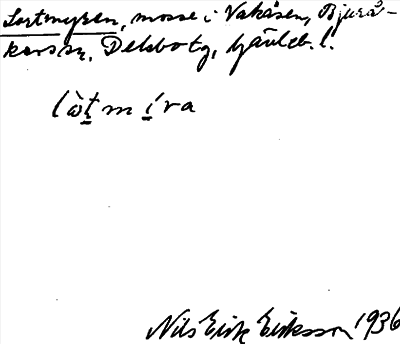 Lortmyren, mosse i Vakåsen, Bjurå-
kers sn, Delsbo tg, Gävleb. l.
lòt̲ m í̲ ra
Nils Erik Eriksson 1936